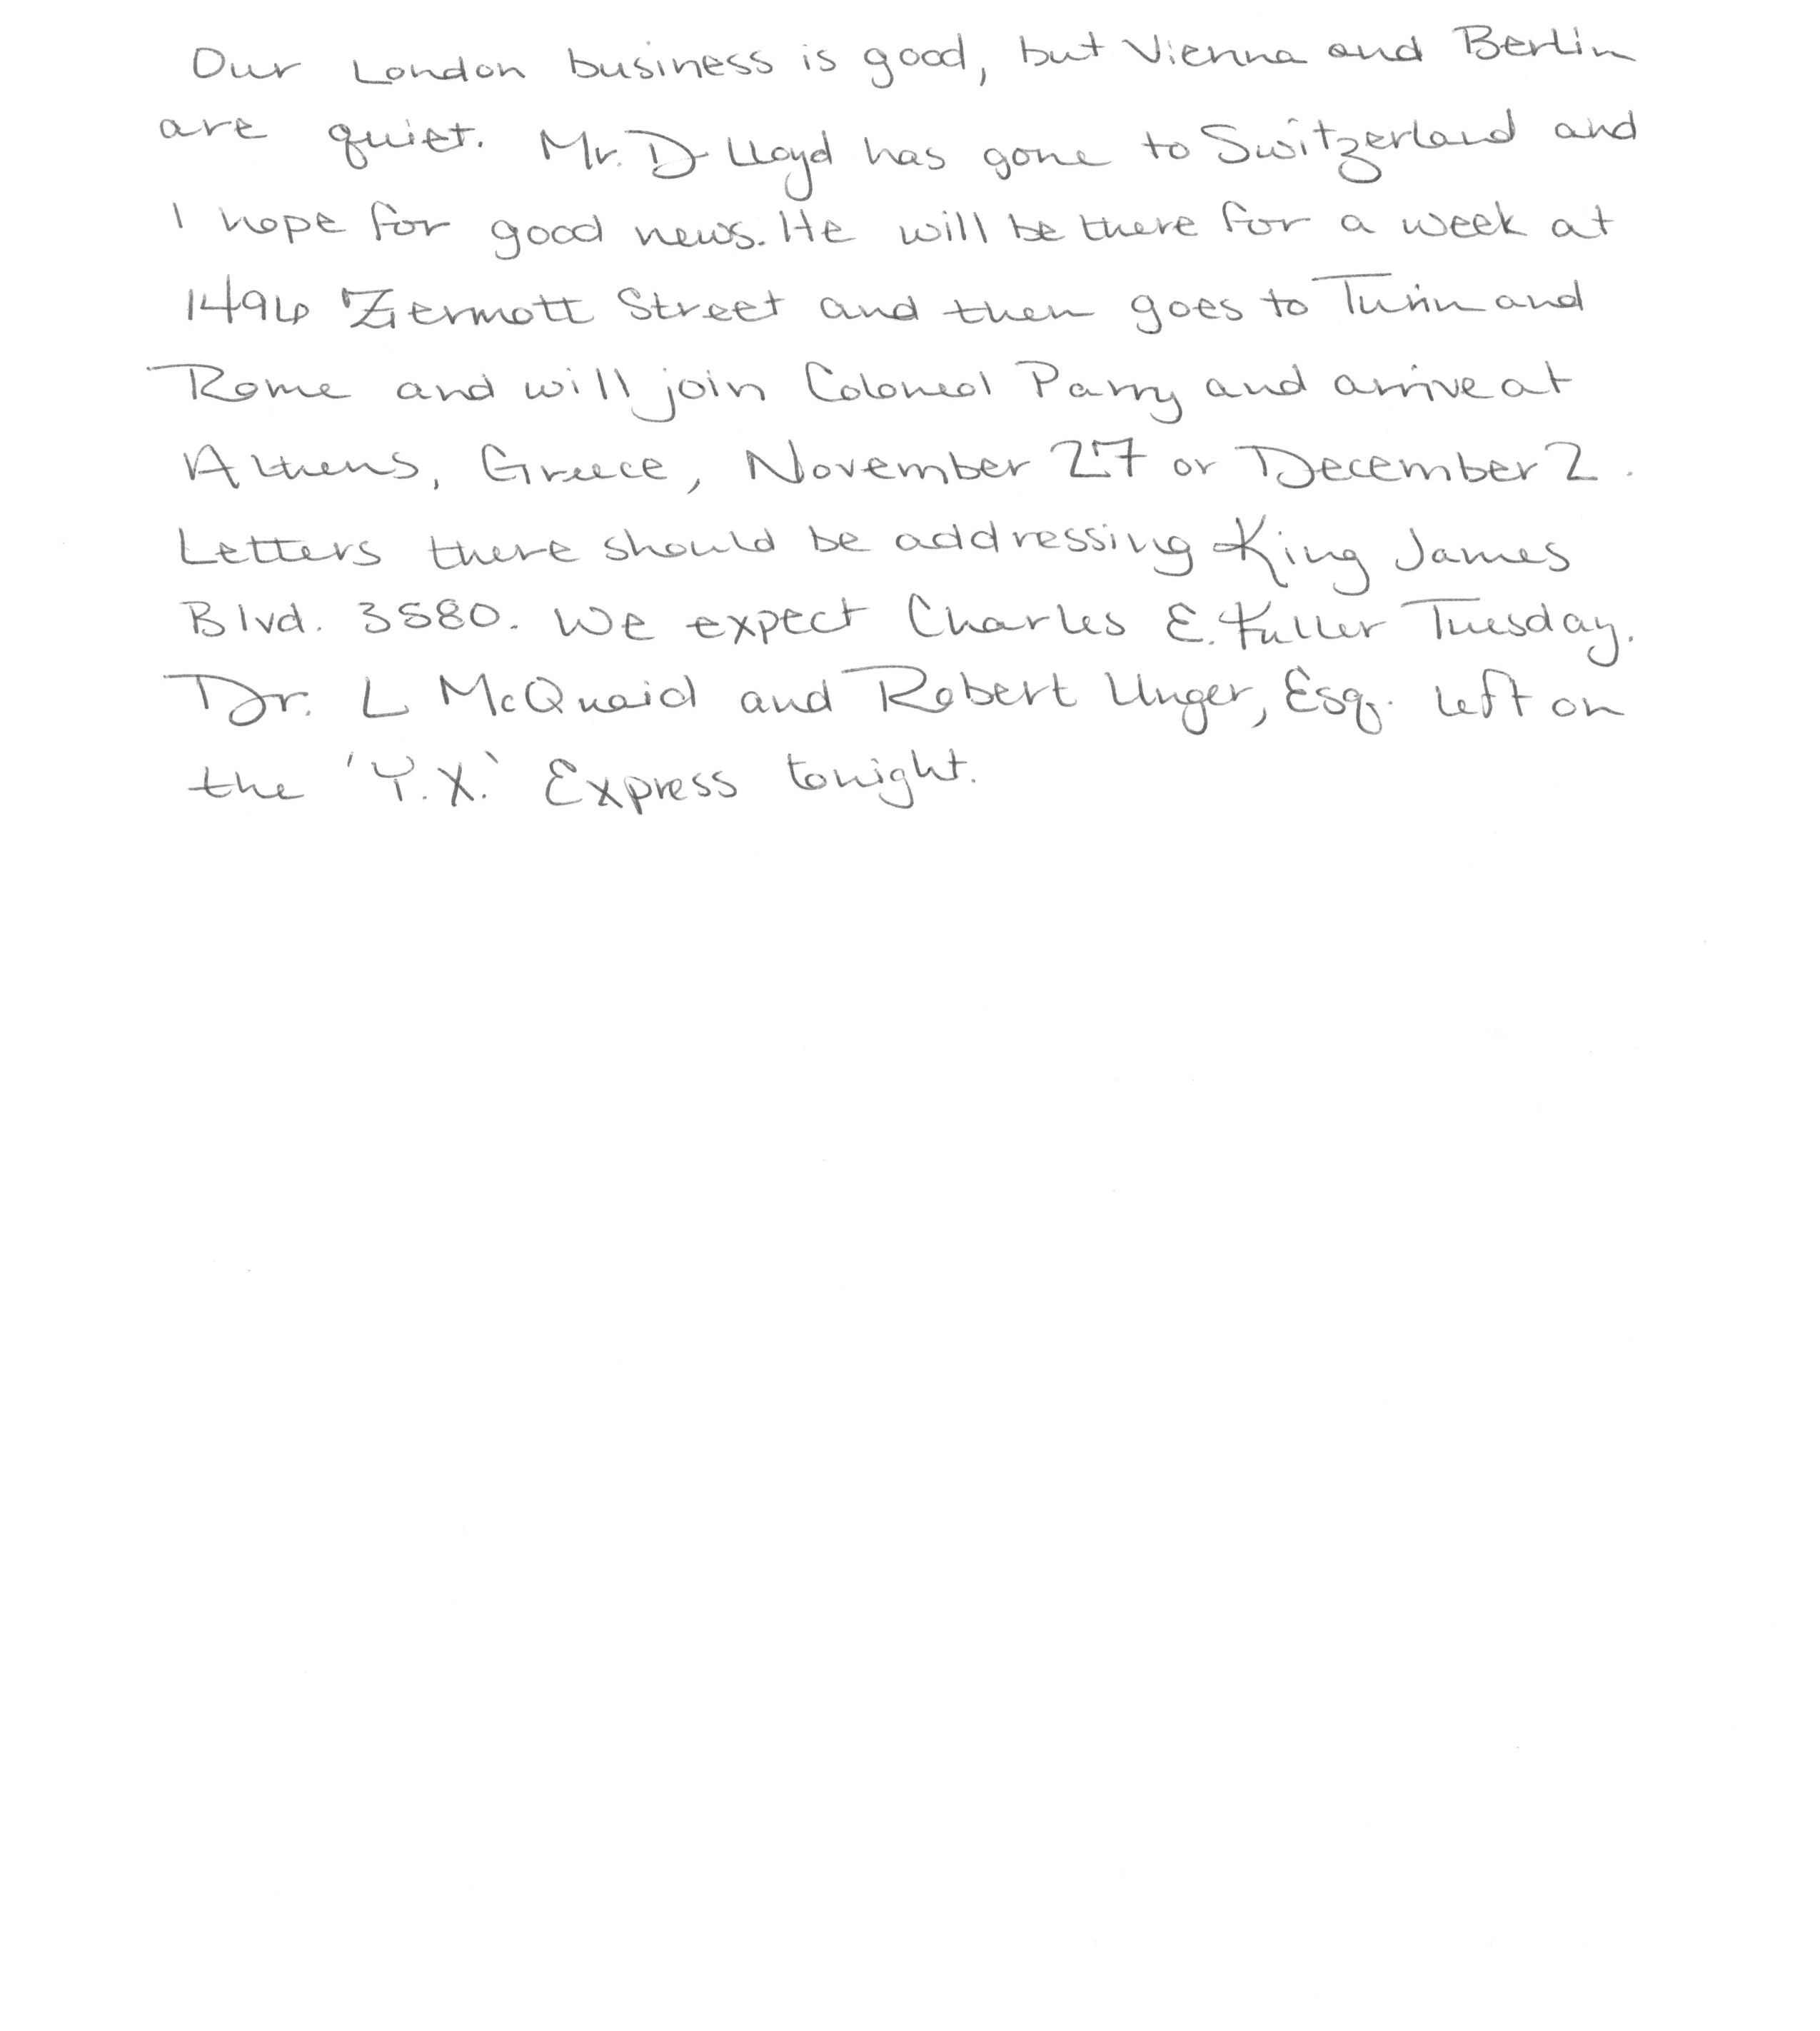 Our London business is good, but Vienna and Berlin
are quiet. Mr. D Lloyd has gone to Switzerland and
I hope for good news. He will be there for a week at
1496 Zermott Street and then goes to Turin and
Rome and will join Colonel Parry and arrive at
Athens, Greece, November 27 or December 2.
Letters there should be addressing King James
Blvd. 3580. We expect Charles E. Fuller Tuesday.
Dr. L McQuaid and Robert Unger, Esq. left on
the 'Y.X.' Express tonight.